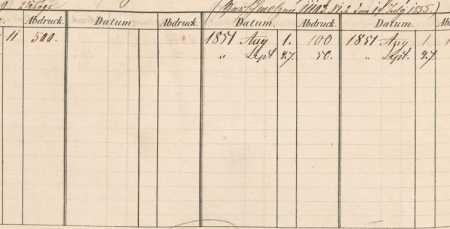 Abdruck. Datum. Abdruck. Datum. Abdruck. Datum.
11 500. 1851 Aug 1. 100 1851 Aug 1.
" Sept 27. 50. " Sept 27.